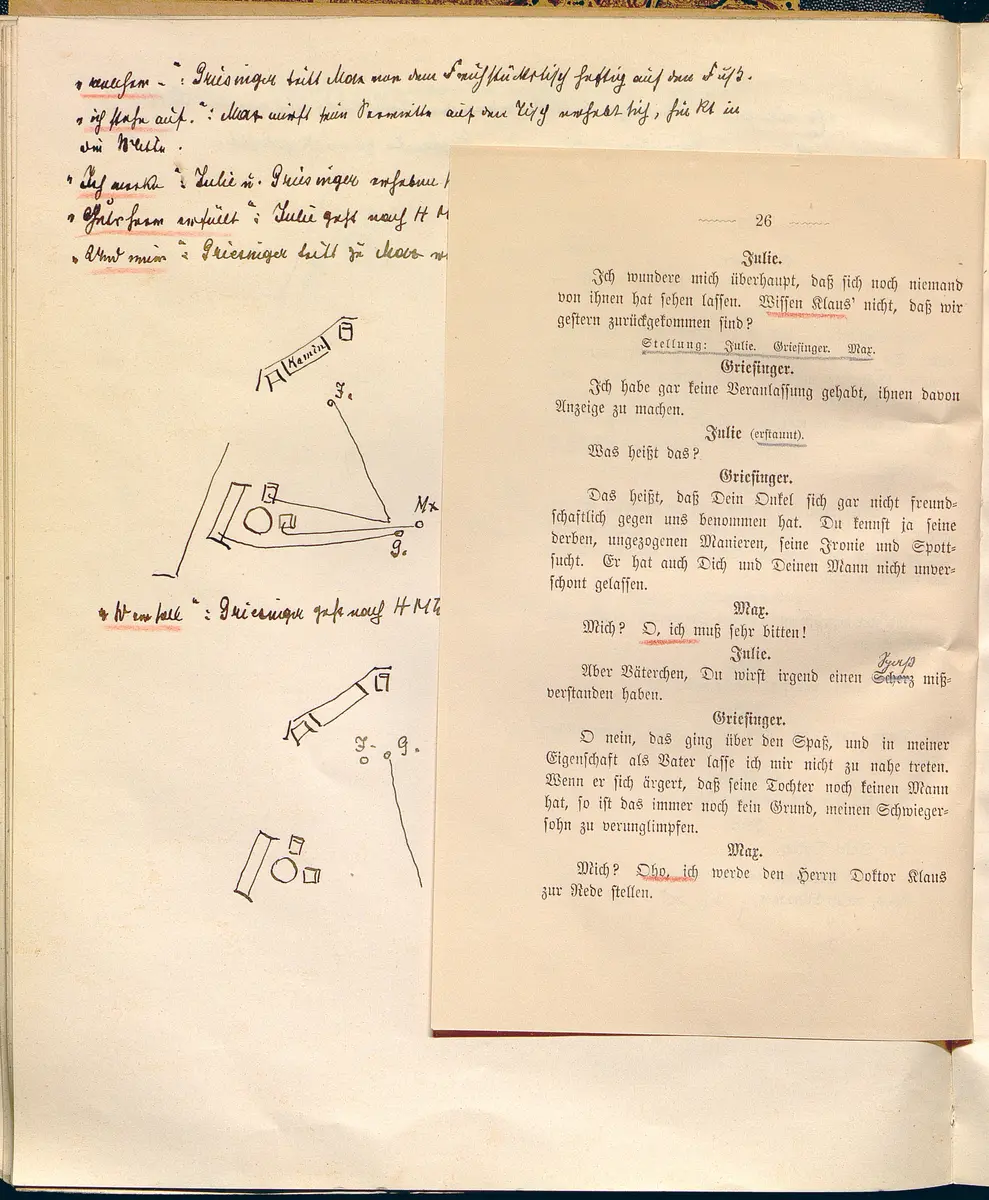 "welcher -": Griesinger tritt Max vor dem Frühstückstisch heftig auf den Fuß.
"ich stehe auf.": Max wirft seine Serviette auf den Tisch erhebt sich, in
die Mitte.
"Ich merke": Julie u. Griesinger erheben
erfüllt": Julie geht nach H M
"Und nun": Griesinger tritt zu Max
Kamin
J.
Mx
G.
": Griesinger geht nach H M
J. G.
26
Julie.
Ich wundere mich überhaupt, daß sich noch niemand
von ihnen hat sehen lassen. Wissen Klaus' nicht, daß wir
gestern zurückgekommen sind?
Stellung: Julie. Griesinger. Max.
Griesinger.
Ich habe gar keine Veranlassung gehabt, ihnen davon
Anzeige zu machen.
Julie (erstaunt).
Was heißt das?
Griesinger.
Das heißt, daß Dein Onkel sich gar nicht freund-
schaftlich gegen uns benommen hat. Du kennst ja seine
derben, ungezogenen Manieren, seine Ironie und Spott-
sucht. Er hat auch Dich und Deinen Mann nicht unver-
schont gelassen.
Max.
Mich? O, ich muß sehr bitten!
Julie.
Spaß
Aber Väterchen, Du wirst irgend einen Scherz miß-
verstanden haben.
Griesinger.
O nein, das ging über den Spaß, und in meiner
Eigenschaft als Vater lasse ich mir nicht zu nahe treten.
Wenn er sich ärgert, daß seine Tochter noch keinen Mann
hat, so ist das immer noch kein Grund, meinen Schwieger-
sohn zu verunglimpfen.
Max.
Mich? Oho, ich werde den Herrn Doktor Klaus
zur Rede stellen.